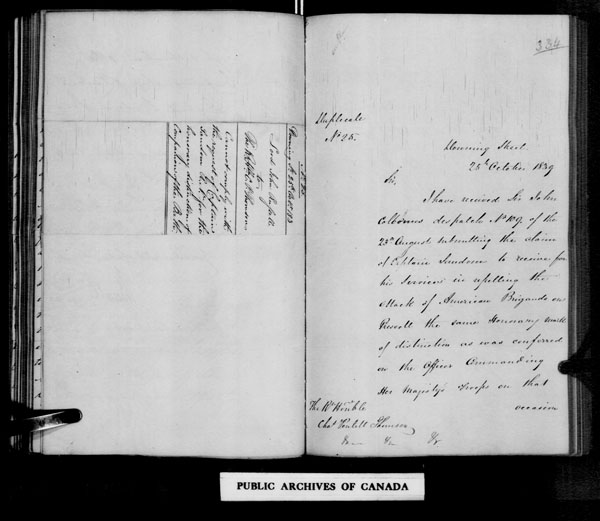 No 25.
Downing St 25th Octr 1839
Lord John Russell
to
The Rt Honble C. P. Thomson
Cannot comply with
the request of Captain
Sandom R.N. for the
honorary distinction of
Companion of the Bath.
334
Duplicate
No 25.
Downing Street.
25th October 1839
Sir,
I have received Sir John
Colborne's despatch No 109. of the
23d August submitting the claim
of Captain Sandom to receive for
his Services in repelling the
attack of American Brigands on
Prescott the same Honorary mark
of distinction as was conferred
on the Officer Commanding
Her Majesty's Troops on that
occasion
The Rt Honble
Chas Poulett Thomson
&c &c &c
PUBLIC ARCHIVES OF CANADA